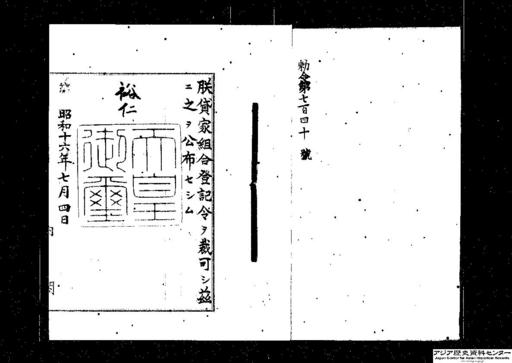 勅令第七百四十號
朕貸家組合登記令ヲ裁可シ茲
ニ之ヲ公布セシム
裕仁
天皇御璽
昭和十六年七月四日
アジア歴史資料センター
Japan Center for Asian Historical Records